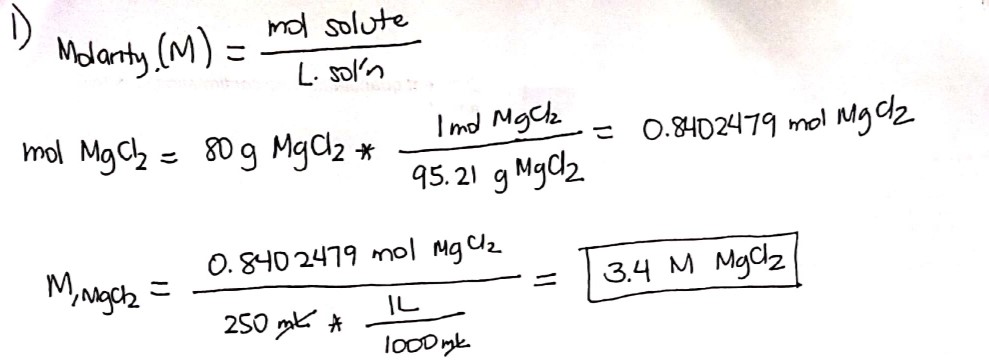 1) Molarity, (M) = mol solute / L. sol'n
mol MgCl2 = 80 g MgCl2 * 1 mol MgCl2 / 95.21 g MgCl2 = 0.8402479 mol MgCl2
M, MgCl2 = 0.8402479 mol MgCl2 / 250 mL * 1L / 1000 mL = 3.4 M MgCl2